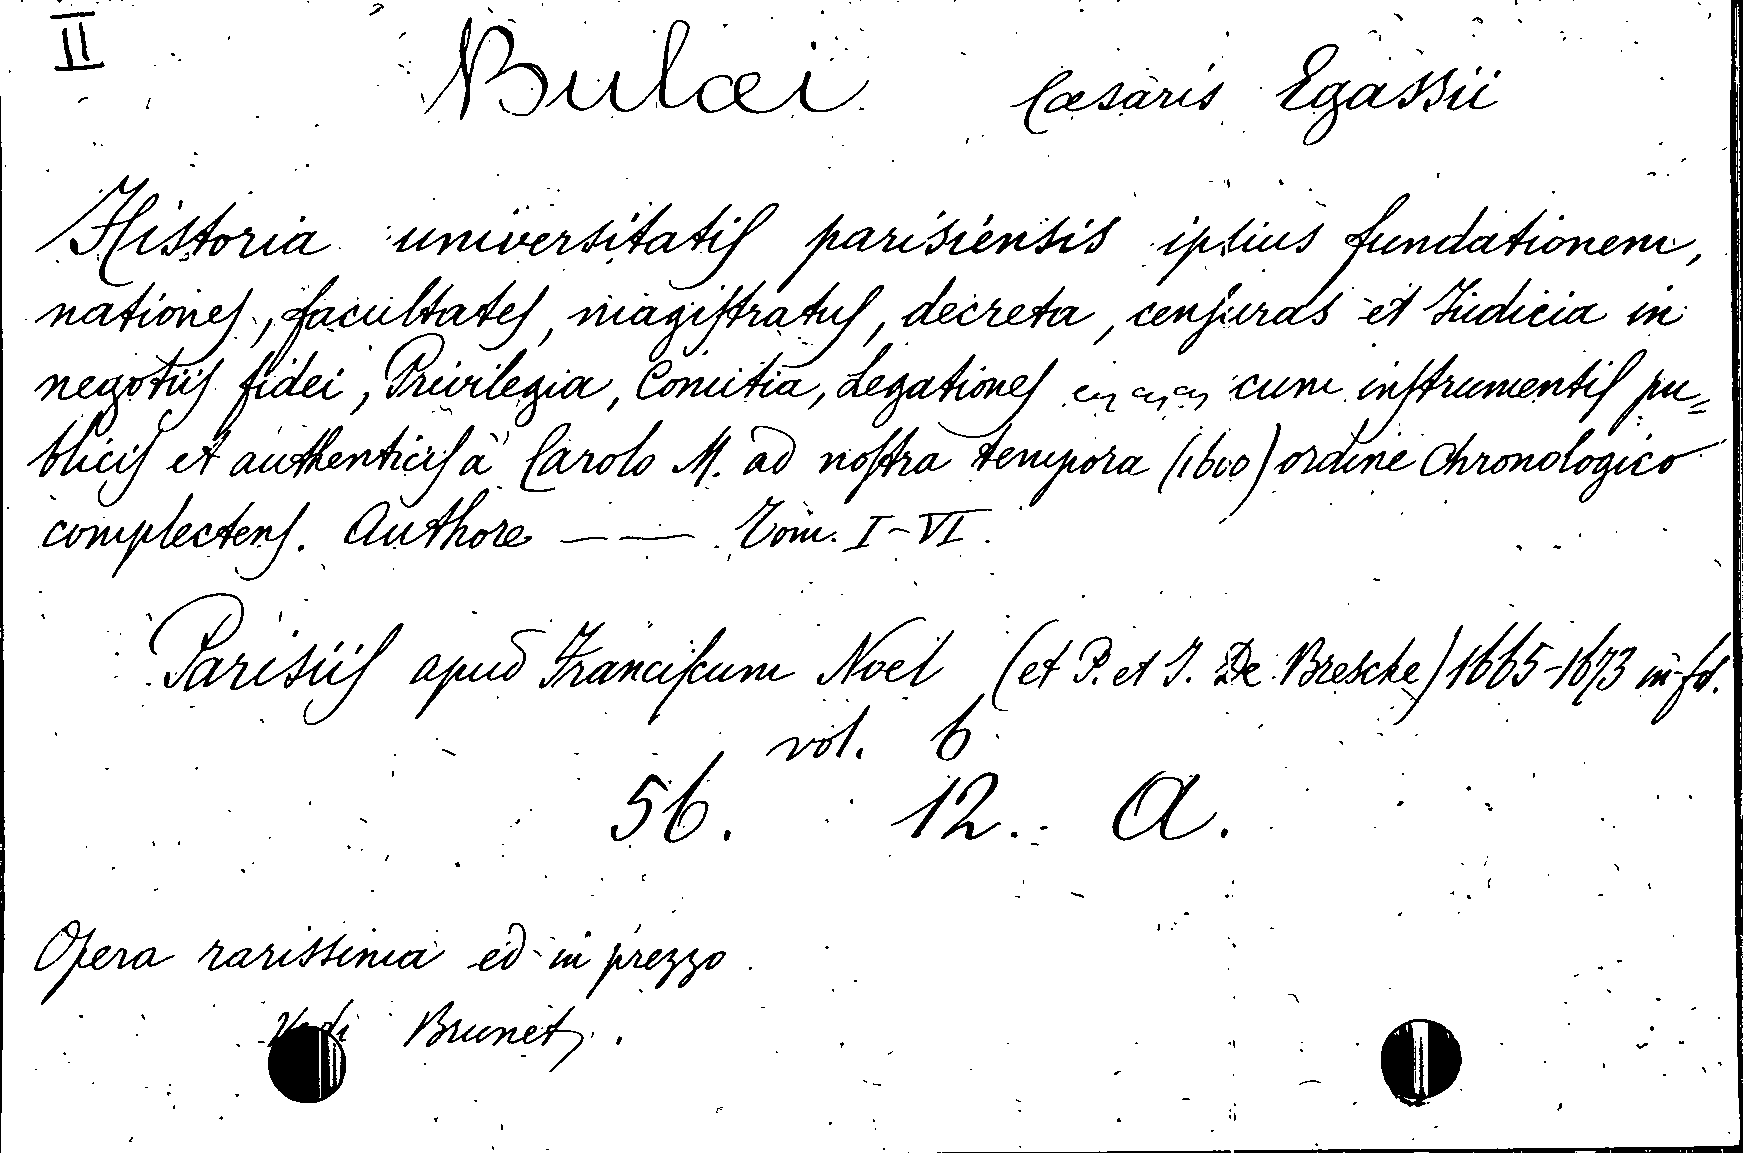 II
Bulæi Cæsaris Egassii
Historia universitatis parisiensis ipsius fundationem,
nationes, facultates, magistratus, decreta, censuras et Iudicia in
negotiis fidei, Privilegia, Comitia, Legationes cum instrumentis pu=
blicis et authenticis à Carolo M. ad nostra tempora (1600) ordine Chronologico
complectens. Authore —— Tom. I-VI.
Parisiis apud Franciscum Noel (et P. et I. De Bresche) 1665-1673 in-fol.
vol. 6
56. 12. A.
Opera rarissima ed in prezzo
Vedi Brunet.